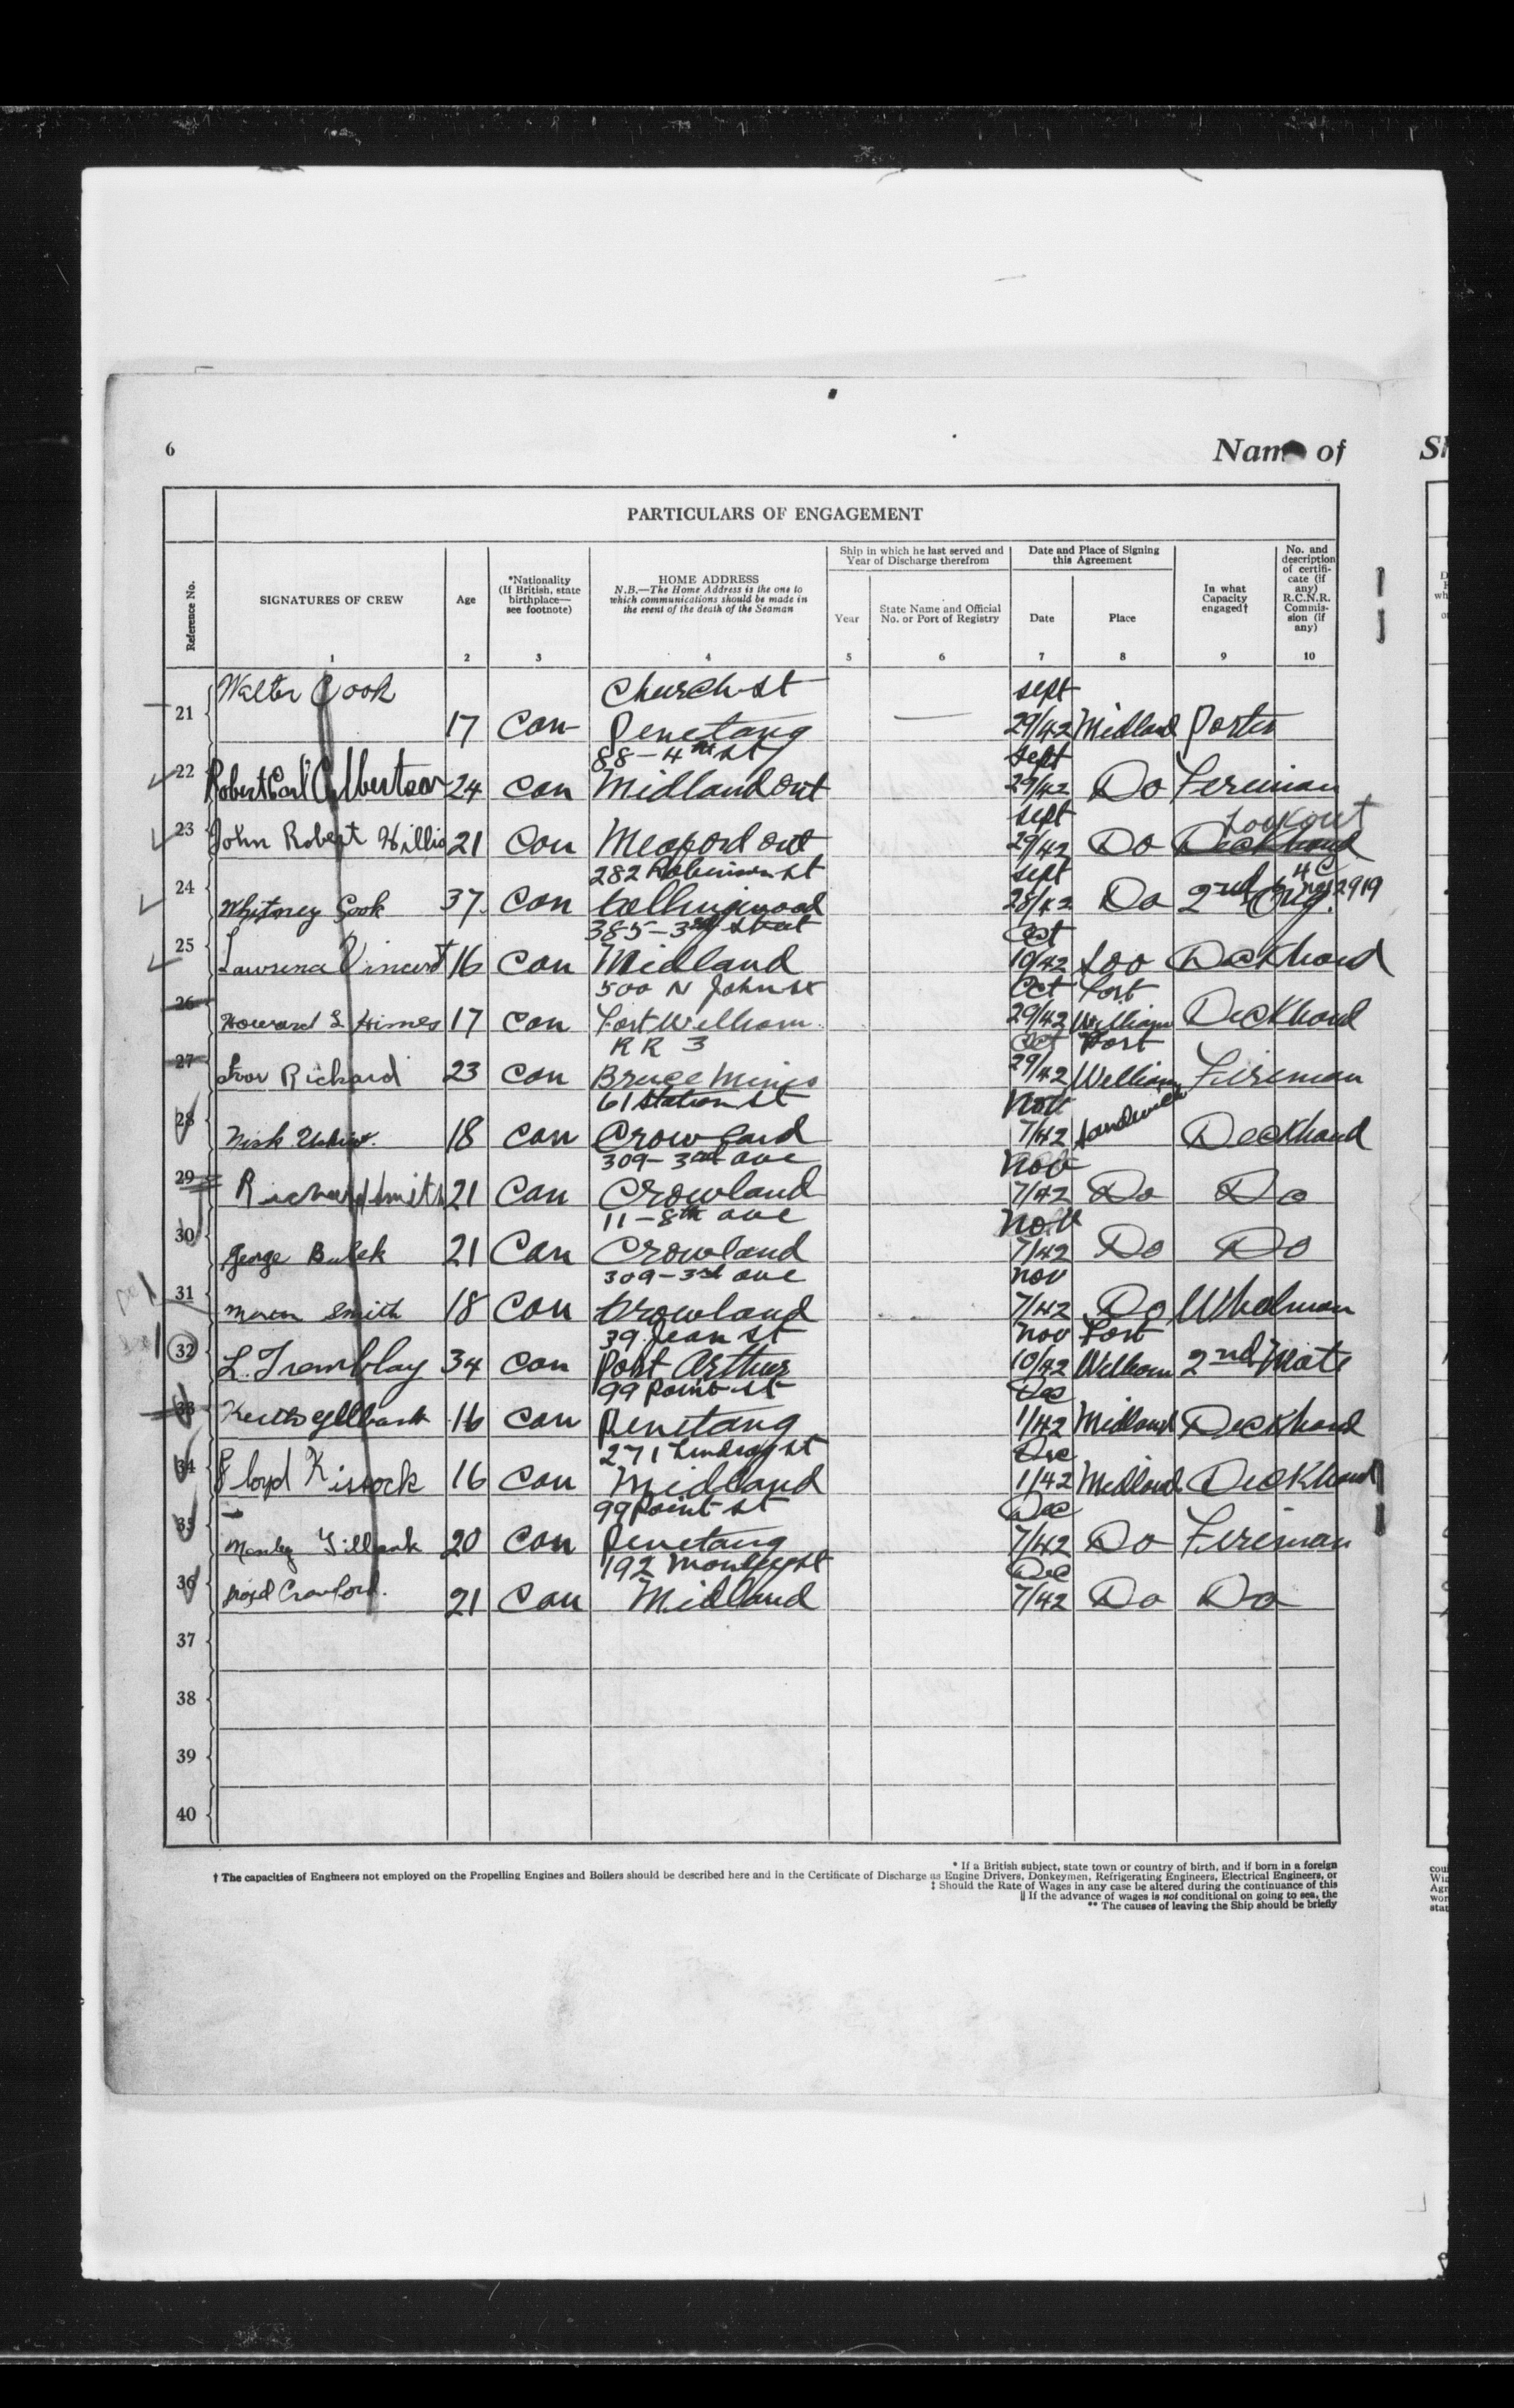 6
Name of
PARTICULARS OF ENGAGEMENT
Reference No.
SIGNATURES OF CREW
Age
*Nationality
(If British, state
birthplace—
see footnote)
HOME ADDRESS
N.B.—The Home Address is the one to
which communications should be made in
the event of the death of the Seaman
Ship in which he last served and
Year of Discharge therefrom
Year
State Name and Official
No. or Port of Registry
Date and Place of Signing
this Agreement
Date
Place
In what
Capacity
engaged†
No. and
description
of certifi-
cate (if
any)
R.C.N.R.
Commis-
sion (if
any)
1 2 3 4 5 6 7 8 9 10
Church st sept
21 Walter Cook 17 Can Penetang — 29/42 Midland Porter
88 - 4th st sept
22 Robert Earl Culbertson 24 Can Midland Ont 29/42 Do Fireman
sept Lookout
23 John Robert Willis 21 Can Meaford Ont 29/42 Do Deckhand
282 Robinson st sept 4 C
24 Whitney Cook 37 Can Collingwood 28/42 Do 2nd Eng. 2919
385 - 3rd street Oct
25 Lawrence Vincent 16 Can Midland 19/42 Soo Deckhand
500 N John st Oct Fort
26 Howard L Himes 17 Can Fort William 29/42 William Deckhand
R R 3 Oct Fort
27 Ivor Richard 23 Can Bruce Mines 29/42 William Fireman
61 Station st Nov
28 Nick 18 Can Crowland 7/42 Sandwich Deckhand
309 - 3rd ave Nov
29 Richard Smith 21 Can Crowland 7/42 Do Do
11 - 8th ave Nov
30 George Bulek 21 Can Crowland 7/42 Do Do
309 - 3rd ave Nov
31 Smith 18 Can Crowland 7/42 Do Whelman
39 Jean st Nov Fort
32 L. Tremblay 34 Can Port Arthur 10/42 William 2nd Mate
99 Point st Dec
33 Keith Gillbank 16 Can Penetang 1/42 Midland Deckhand
271 Lindsay st Dec
34 Floyd Kissock 16 Can Midland 1/42 Midland Deckhand
99 Point st Dec
35 Manley Gillbank 20 Can Penetang 7/42 Do Fireman
192 st Dec
36 Crawford. 21 Can Midland 7/42 Do Do
37
38
39
40
* If a British subject, state town or country of birth, and if born in a foreign
† The capacities of Engineers not employed on the Propelling Engines and Boilers should be described here and in the Certificate of Discharge as Engine Drivers, Donkeymen, Refrigerating Engineers, Electrical Engineers, or
‡ Should the Rate of Wages in any case be altered during the continuance of this
|| If the advance of wages is not conditional on going to sea, the
** The causes of leaving the Ship should be briefly